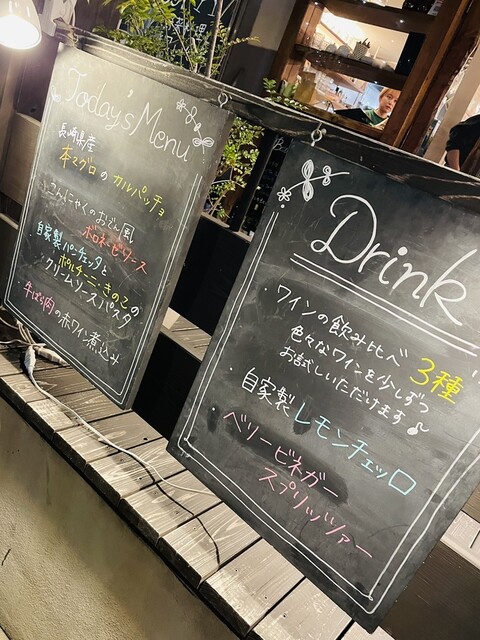 Today's Menu
長崎県産
本マグロのカルパッチョ
・こんにゃくのおでん風
ボロネーゼソース
自家製パンチェッタと
ポルチーニ・きのこの
クリームソースパスタ
・牛ばら肉の赤ワイン煮込み
Drink
・ワインの飲み比べ 3種
色々なワインを少しずつ
お試しいただけます♪
・自家製レモンチェッロ
・ベリービネガー
スプリッツァー